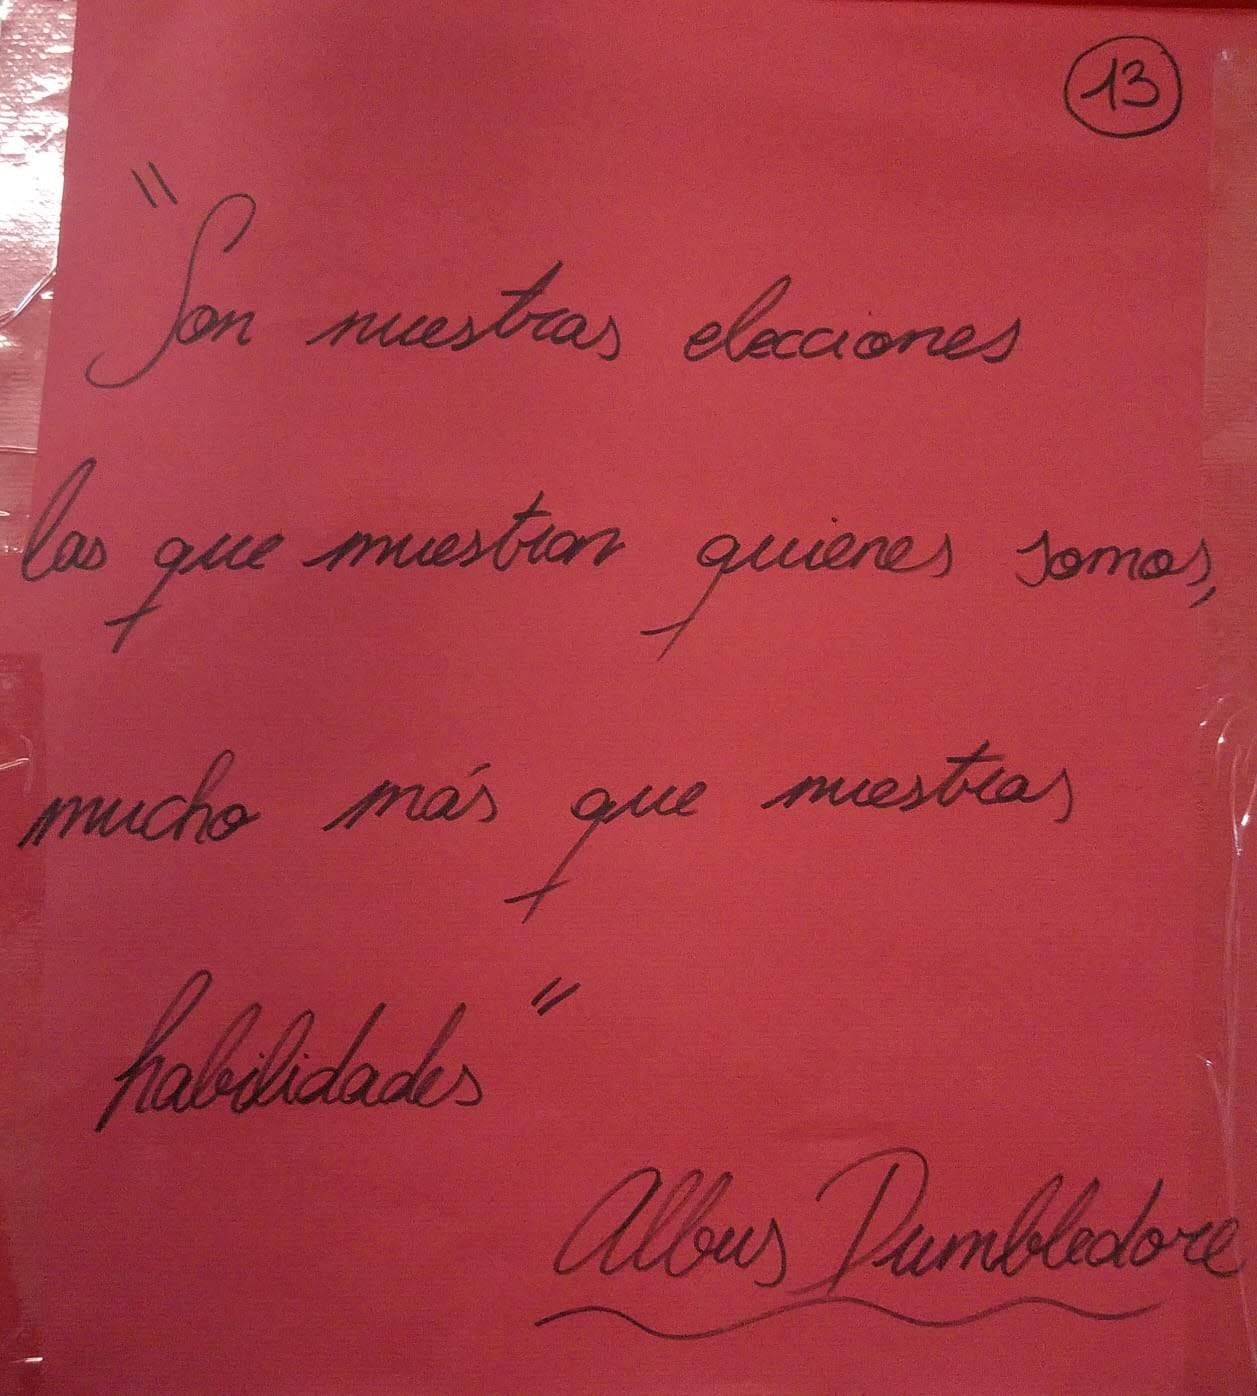 13
"Son nuestras elecciones
las que muestran quienes somos,
mucho más que nuestras
habilidades"
Albus Dumbledore